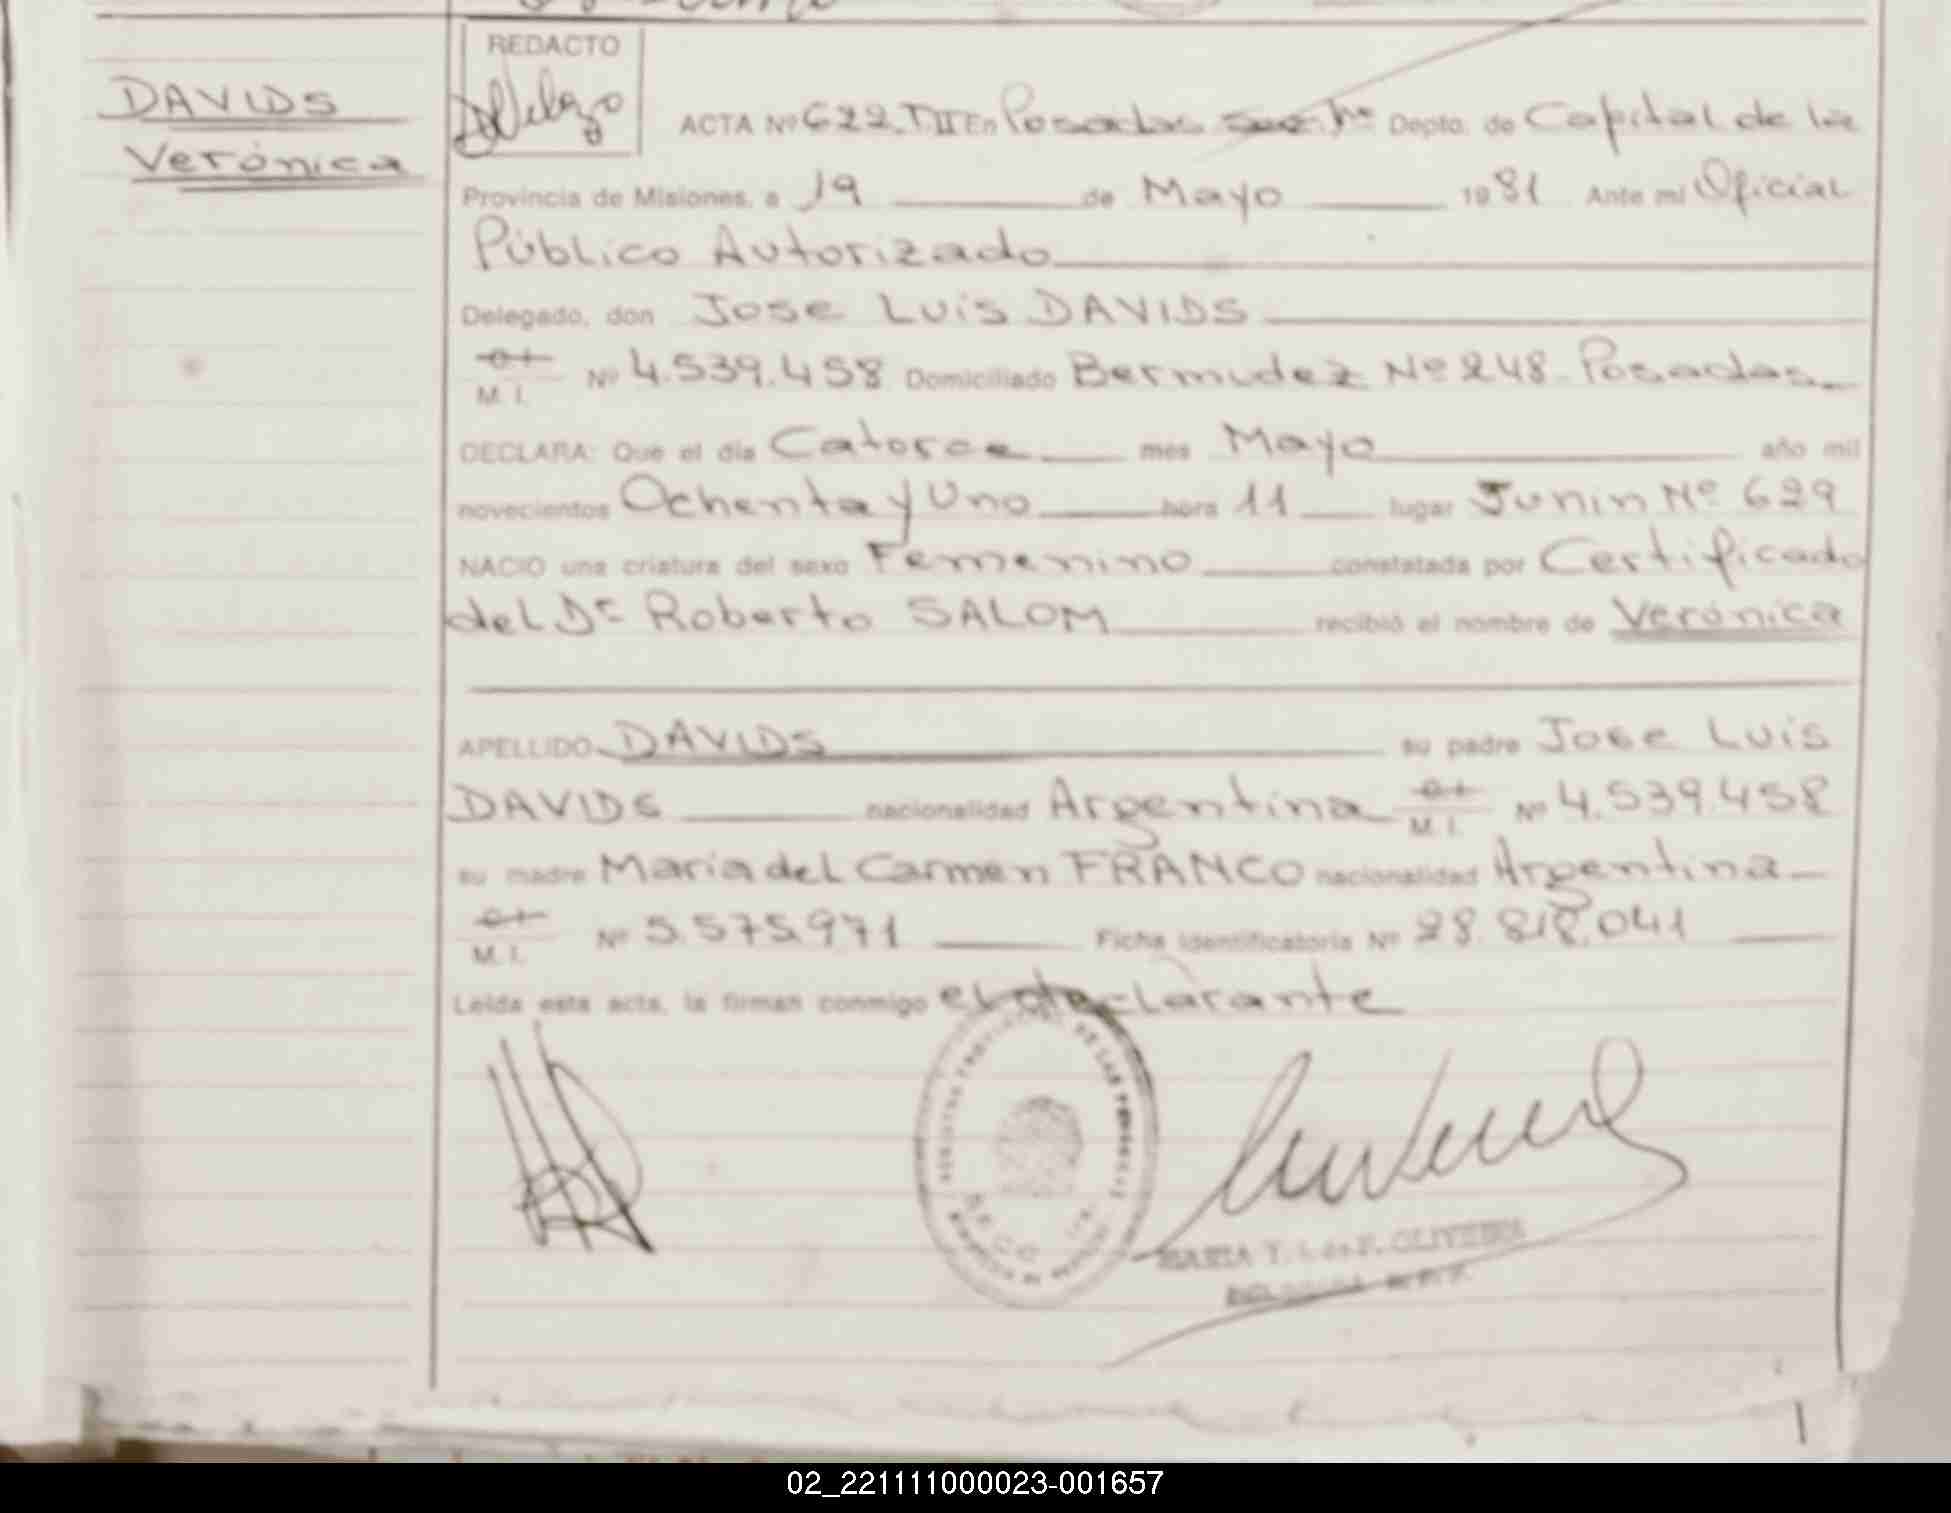 DAVIDS
Verónica
REDACTO
ACTA Nº 622 TII En Posadas Depto. de Capital de la
Provincia de Misiones, a 19 de Mayo 1981 Ante mí Oficial
Público Autorizado
Delegado, don Jose Luis DAVIDS
M. I. Nº 4.539.458 Domiciliado Bermudez Nº 248 Posadas
DECLARA: Que el día Catorce mes Mayo año mil
novecientos Ochenta y Uno hora 11 lugar Junin Nº 629
NACIO una criatura del sexo Femenino constatada por Certificado
del Dr Roberto SALOM recibió el nombre de Verónica
APELLIDO DAVIDS su padre Jose Luis
DAVIDS nacionalidad Argentina M. I. Nº 4.539.458
su madre Maria del Carmen FRANCO nacionalidad Argentina
M. I. Nº 5.575.971 Ficha identificatoria Nº 28.818.041
Leída esta acta, la firman conmigo el declarante
MARIA OLIVEIRA
02_221111000023-001657